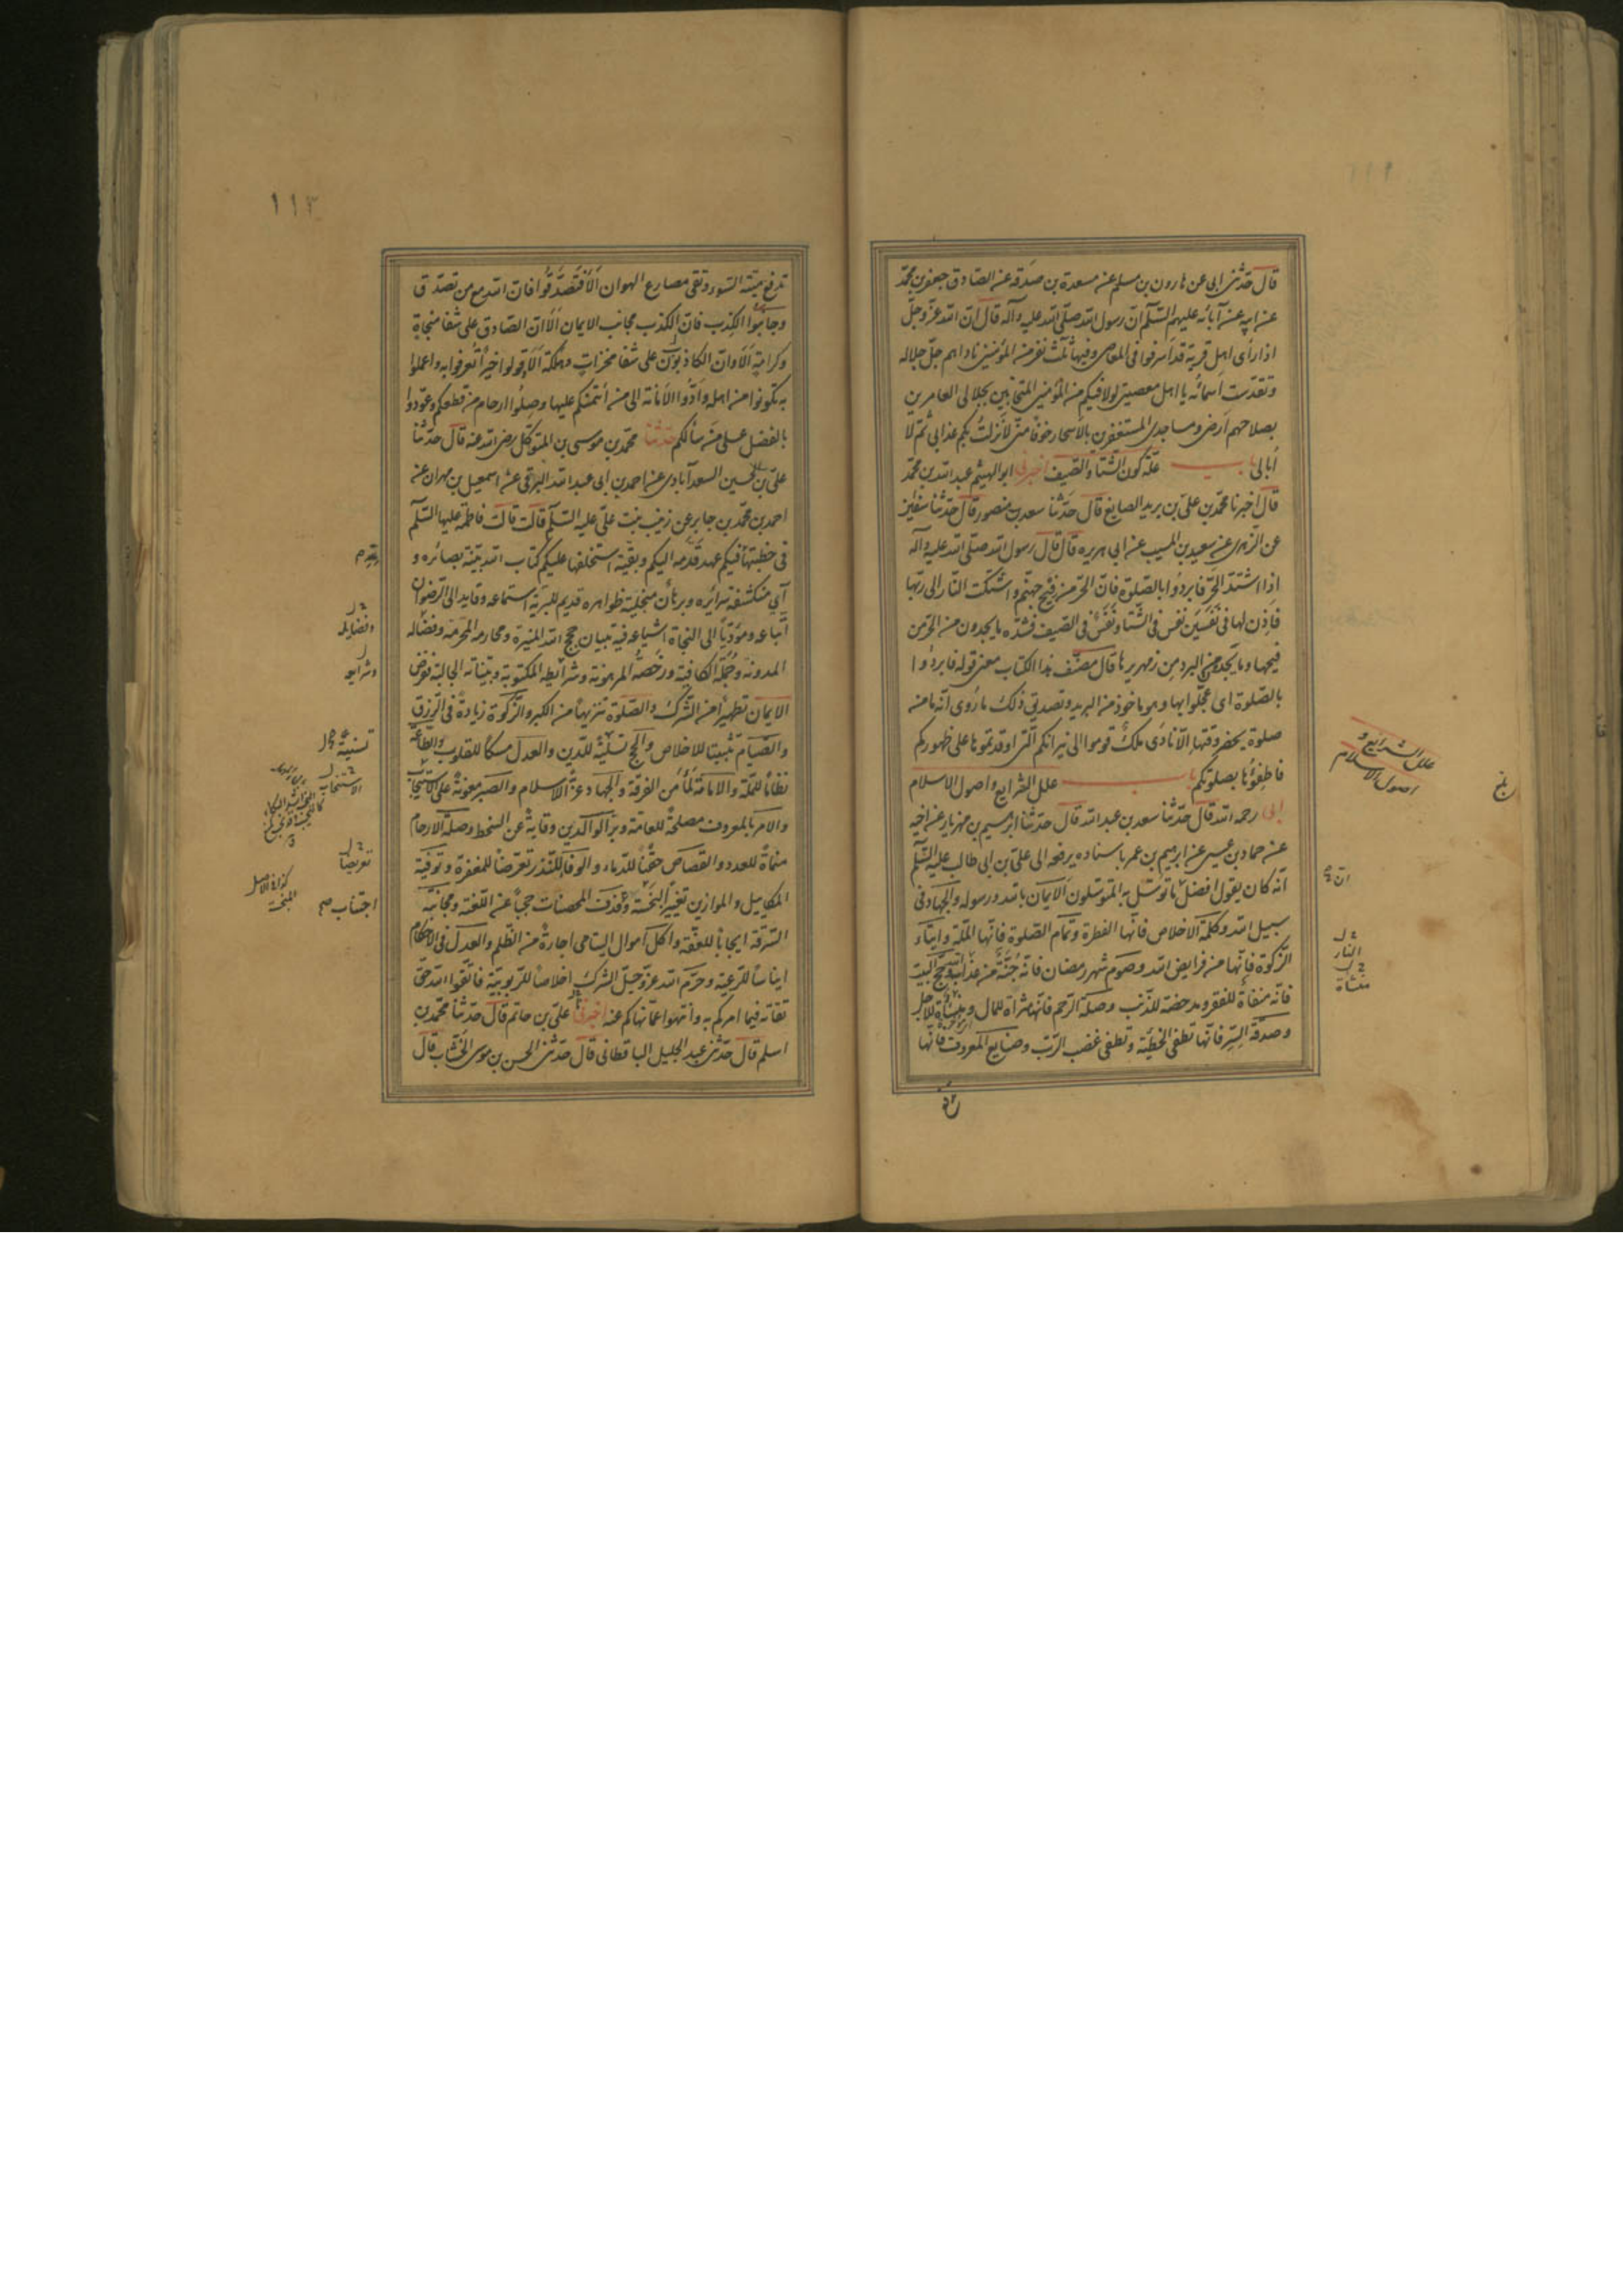 قال حدثنى ابى عن هارون بن مسلم عن مسعدة بن صدقه عن الصادق جعفر بن محمّد
عن ابيه عن آبائه عليهم السّلم انّ رسول الله صلى الله عليه وآله قال ان الله عزّ وجلّ
اذا رأى اهل قرية قد اسرفوا فى المعاصى وفيها ثلث نفر من المؤمنين ناداهم جلّ جلاله
وتقدّست اسمائه يا اهل معصيتى لولا فيكم من المؤمنين المتحابين بجلالى العامرين
بصلاحهم ارضى ومساجدى المستغفرين بالاسحار خوفا منّى لأنزلت بكم عذابى ثم لا
ابالى باب علّة كون الشتاء والصيف اخبرنى ابو الهيثم عبد الله بن محمّد
قال اخبرنا محمّد بن علىّ بن يزيد الصايغ قال حدّثنا سعيد بن منصور قال حدّثنا سفين
عن الزهرى عن سعيد بن المسيب عن ابى هريره قال قال رسول الله صلى الله عليه وآله
اذا اشتدّ الحرّ فابردُوا بالصلوة فانّ الحرّ من فيح جهنّم واشتكت النّار الى ربّها
فأذن لها فى نَفَسَين نفس فى الشّتا ونَفَس فى الصيف فشدّه ما يجدون من الحرّ من
فيحها وما يجدون من البرد من زمهريرها قال مصنّف هذا الكتاب معنى قوله فابردُوا
بالصّلوة اى عجّلوا بها وهو ماخوذ من البريد وتصديق ذلك ما رُوى انّه ما من
صلوة يحضر وقتها الّا نادى ملكٌ قوموا الى نيرانكم الّتى اوقدتموها على ظهوركم
فاطفؤُها بصلوتكم باب علل الشرايع واصول الاسلام
ابى رحمه الله قال حدّثنا سعد بن عبد الله قال حدّثنا ابرهيم بن مهزيار عن اخيه
عن حماد بن عيسى عن ابرهيم بن عمر باسناده يرفعه الى علىّ بن ابى طالب عليه السّلم
انّه كان يقول افضل ما توسّل به المتوسّلون الايمان بالله ورسوله والجهاد فى
سبيل الله وكلمة الاخلاص فانّها الفطرة وتمام الصّلوة فانّها الملّة وايتاء
الزّكوة فانّها من فرايض الله وصوم شهر رمضان فانّه جُنّةٌ من عذاب الله وحجّ البيت
فانّه منفاة للفقر ومدحضة للذّنب وصلة الرّحم فانّها مثراة للمال ومنساة للاجل
وصدقة السّرّ فانّها تطفى الخطيئة وتطفى غضب الرّبّ وصنايع المعروف فانّها
علل الشرايع و
اصول الاسلام
بلغ
انّ
النار
منساة
١١٣
تدفع ميتة السّوء وتقى مصارع الهوان الا فتصدّقوا فان الله مع من تصدّق
وجانبوا الكذب فانّ الكذب مجانب الايمان الا انّ الصادق على شفا منجاة
وكرامة الا وانّ الكاذبون على شفا مخزاة ومهلكة الا وقولوا خيرا تعرفوا به واعملوا
به تكونوا من اهله وادّوا الامانة الى من ائتمنكم عليها وصلوا ارحام من قطعكم وعودوا
بالفضل على من سألكم حدّثنا محمّد بن موسى بن المتوكّل رضى الله عنه قال حدّثنا
علىّ بن الحسين السعدآبادى عن احمد بن ابى عبد الله البرقى عن اسمعيل بن مهران عن
احمد بن محمّد بن جابر عن زينب بنت علىّ عليه السّلم قالت قالت فاطمة عليها السّلم
فى خطبتها فيكم عهد قدّمه اليكم وبقيّة استخلفها عليكم كتاب الله بيّنة بصائره و
آى منكشفة سرائره وبرهان منجلية ظواهره قديم للبريّة استماعه وقايد الى الرّضوان
اتّباعه ومؤدّيا الى النجاة اشياعه فيه تبيان حجج الله المنيرة ومحارمه المحرمة وفضاله
المدونة وجمله الكافية ورخصه المرهونة وشرائطه المكتوبة وبيّناته الجالية ففرض
الايمان تطهيرا من الشّرك والصّلوة تنزيها من الكبر والزّكوة زيادة فى الرّزق
والصّيام تثبيتا للاخلاص والحج تسلية للدّين والعدل مسكا للقلوب والطّاعة
نظاما للملّة والامامة لمّا من الفرقة والجهاد عزّ الاسلام والصبر معونة على الاستيجاب
والامر بالمعروف مصلحة للعامّة وبرّ الوالدين وقاية عن السخط وصلة الارحام
منماة للعدد والقصاص حقنا للدّماء والوفا للنّذر تعرّضا للمغفرة وتوفية
المكاييل والموازين تغيير البخسة وقذف المحصنات حجبا عن اللّعنة ومجانبة
السّرقة ايجابا للعفّة واكل اموال اليتامى اجارة من الظّلم والعدل فى الاحكام
ايناسا للرّعية وحرّم الله عزّ وجلّ الشرك اخلاصا للرّبوبيّة فاتّقوا الله حقّ
تقاته فيما امركم به وانتهوا عمّا نهاكم عنه اخبرنى علىّ بن حاتم قال حدّثنا محمّد بن
اسلم قال حدّثنى عبد الجليل الباقطانى قال حدّثنى الحسن بن موسى الخشّاب قال
وفضايله
وشرايعه
تسنية
الاستنجاب
تعريضا
اجتناب